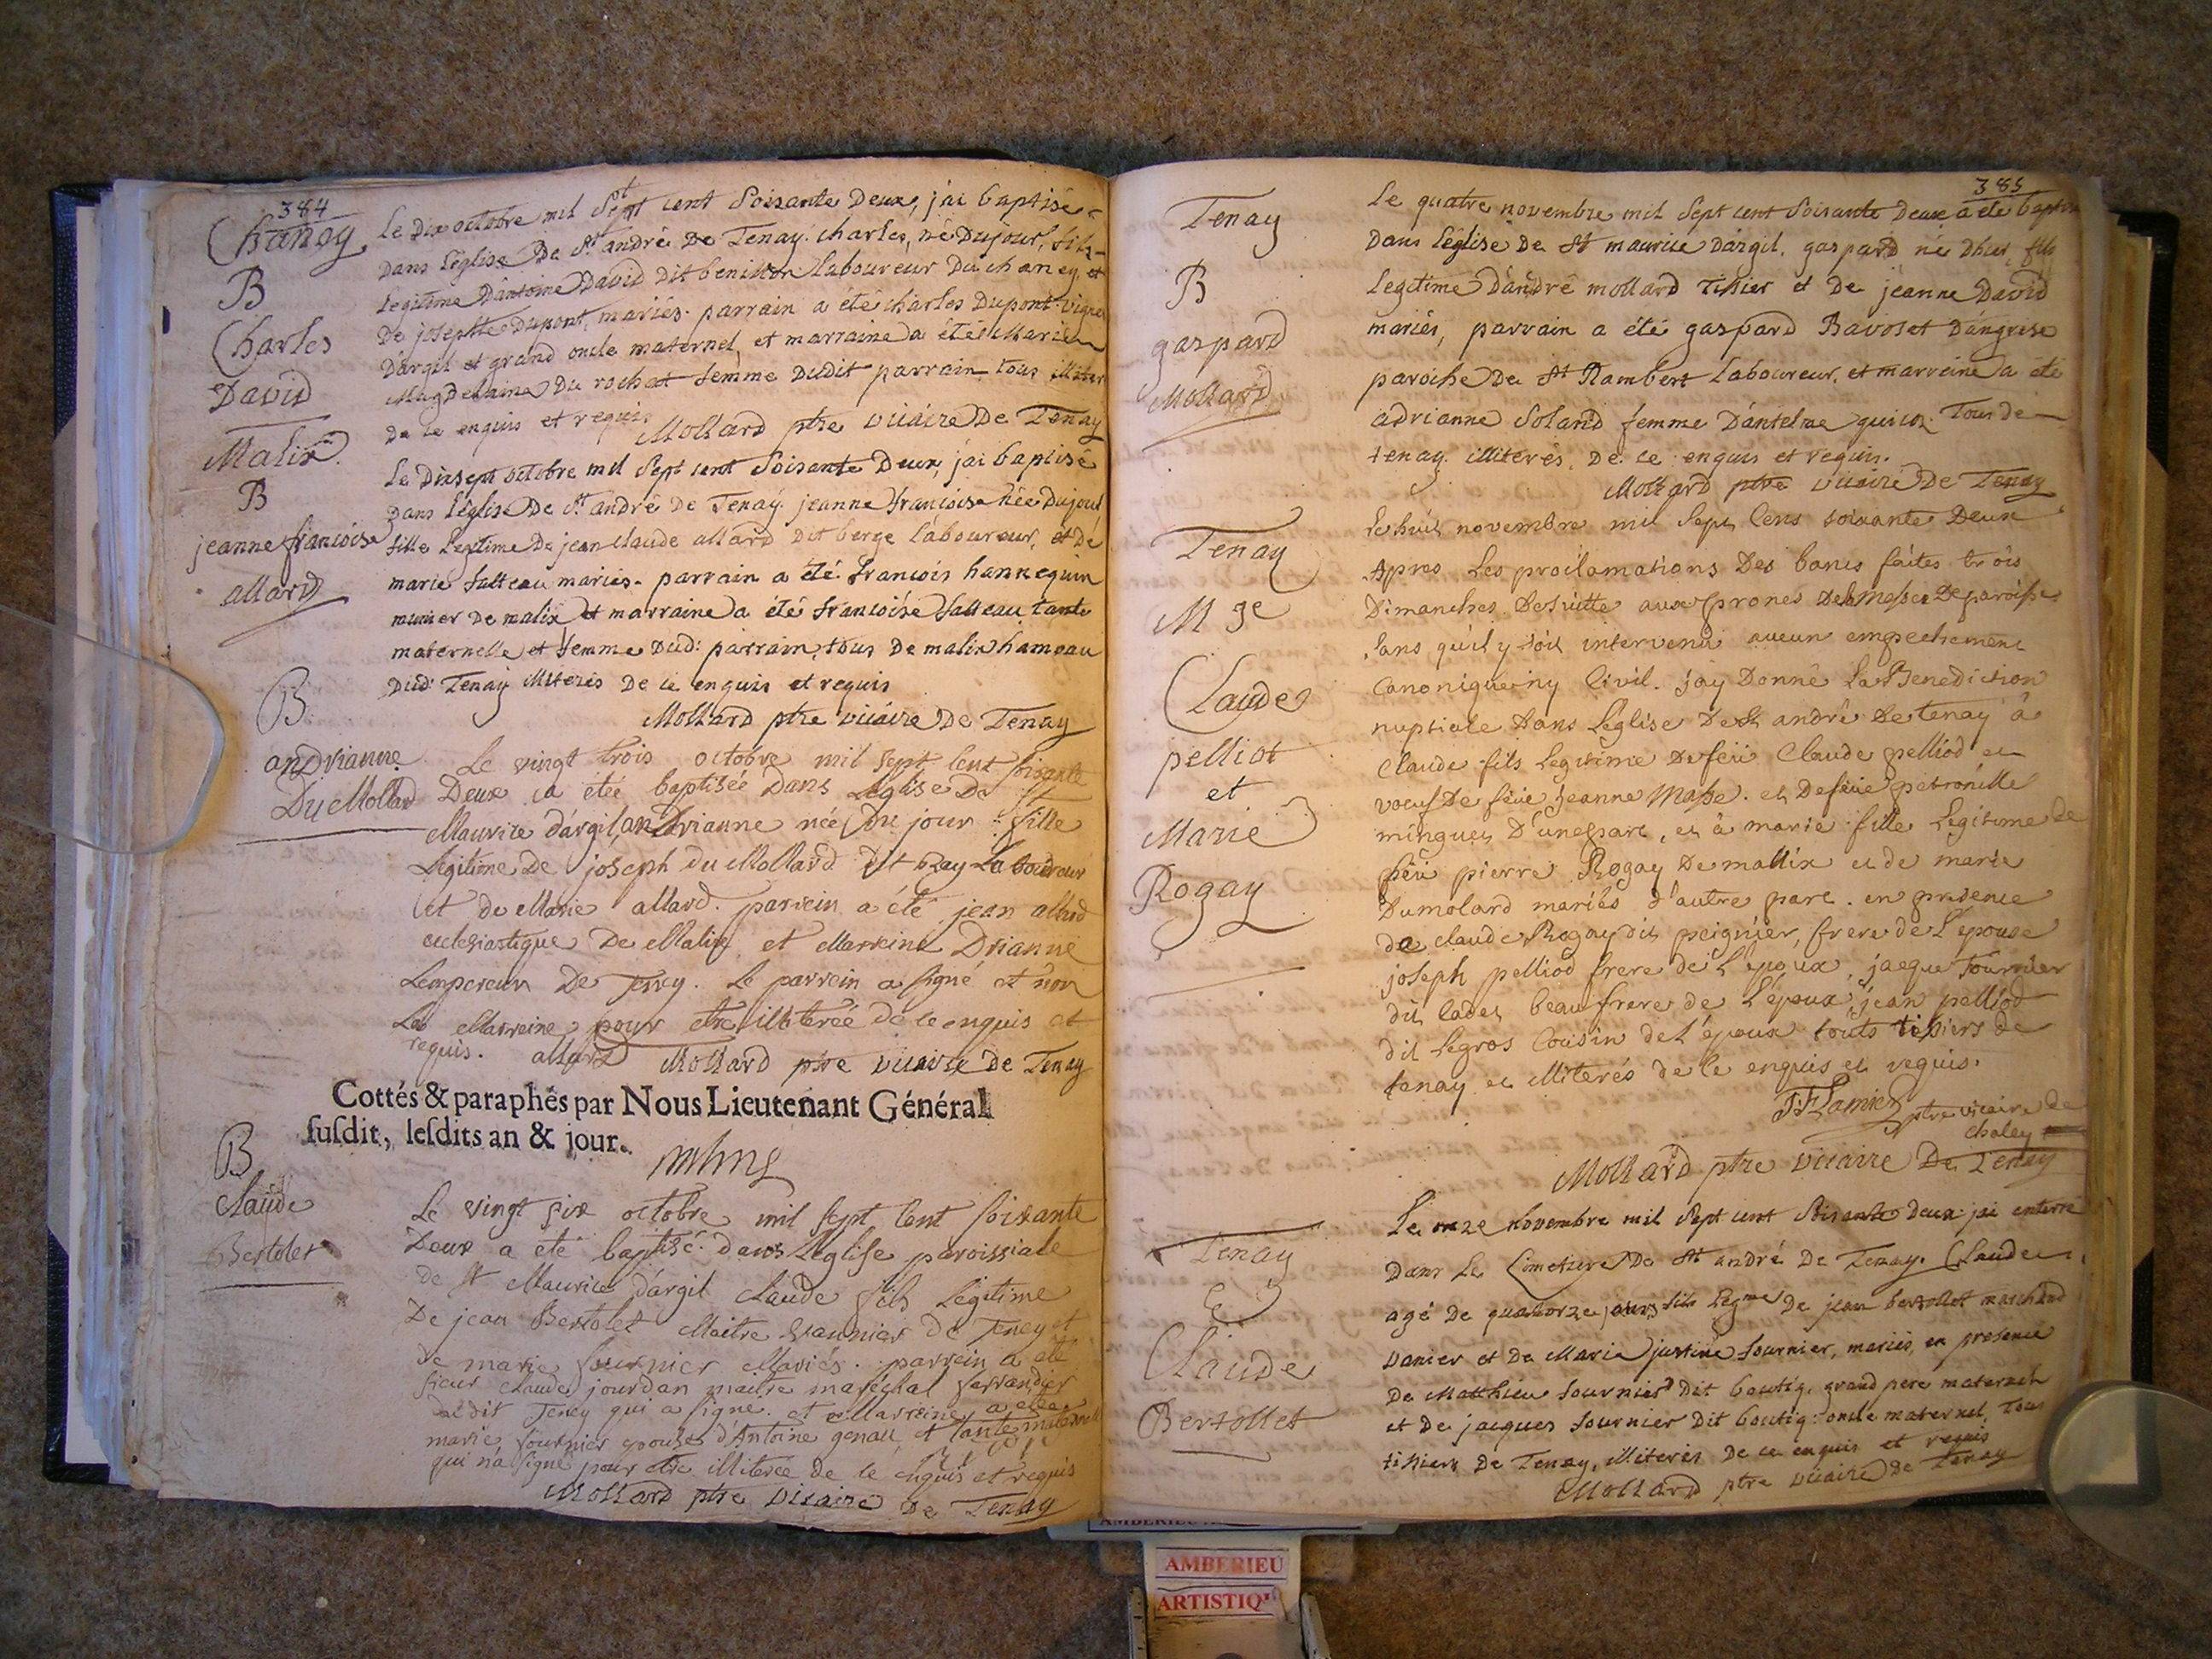 384
Chaney
B
Charles
David
Malix
B
jeanne francoise
allard
B
andrianne
Du Mollard
B
Claude
Bertolet
Le Dix octobre mil Sept cent Soixante Deux, j'ai baptisé
Dans L'église De St andré De Tenay. charles, né Dujour, fils
Legitime Dantoine David Dit beniton Laboureur Du chaney, et
De josephte Dupont, mariés. parrain a été charles Dupont vigner
D'argil et grand oncle maternel, et marraine a été Marie
Magdelaine Du rochat femme Dudit parrain tous illiter
De ce enquis et requis
Mollard ptre vicaire De Tenay
Le Dix sept octobre mil Sept cent Soixante Deux, j'ai baptisé
Dans L'église De St andré De Tenay. jeanne francoise Née Dujour
fille Legitime De jean claude allard Dit berge Laboureur, et De
marie falteau mariés. parrain a été francois hannequin
munier de malix, et marraine a été francoise falteau, tante
maternelle et femme Dud: parrain, tous De malix hameau
Dud: Tenay illiterés De ce enquis et requis
Mollard ptre vicaire De Tenay
Le vingt trois octobre mil sept cent soixante
Deux a été baptisée Dans L'église De St
Maurice d'argil, andrianne née du jour fille
Legitime De joseph du Mollard Dit bray Laboureur
et de Marie allard. parrein a été jean allard
ecclesiastique De Malix, et Marreine Drianne
Lempereur De Teney. Le parrein a signé et non
La Marreine pour etre illiterée de ce enquis et
requis. allard Mollard ptre vicaire de Tenay
Cottés & paraphés par Nous Lieutenant Général
susdit, lesdits an & jour.
Le vingt six octobre mil sept cent soixante
Deux a été baptisé dans L'église paroissiale
de St Maurice d'argil Claude fils Légitime
De jean Bertolet Maitre vannier de Teney et
de marie fournier Mariés. parrein a été
sieur claude jourdan maitre maréchal ferrandier
dudit Teney qui a signé. et Marreine a été
marie fournier epouse d'Antoine genau, et tante maternelle
qui n'a signé pour etre illiterée de ce enquis et requis
Mollard ptre vicaire De Tenay
385
Tenay
B
gaspard
Mollard
Tenay
M ge
Claude
pelliot
et
Marie
Rogay
Tenay
Claude
Bertollet
Le quatre novembre mil Sept cent Soixante Deux a été baptisé
Dans L'église De St maurice D'argil. gaspard né D'hier, fils
Legitime D'andré mollard tissier et De jeanne David
mariés, parrain a été gaspard Bavoset D'angrese
paroisse De St Rambert Laboureur, et marreine a été
adrianne Soland femme D'antelme tous de
tenay. illiterés. De ce enquis et requis.
Mollard ptre vicaire De Tenay
Le huit novembre mil Sept Cens soixante Deux
Apres Les proclamations Des bancs faites trois
Dimanches De suitte aux prones Des Messes De paroisse
sans qu'il y soit intervenu aucun empechement
Canonique ny Civil. j'ay Donné La Benediction
nuptiale Dans L'église De St andré de tenay à
Claude fils Legitime De feu Claude pelliod et
voeuf De feüe jeanne Masse. et De feüe petronille
minguet D'une part, et à marie fille Legitime de
feu pierre Rogay De mallix et de marie
Dumolard mariés d'autre part. en presence
de claude Rogay dit peignier, frere de L'epouse
joseph pelliod frere de L'epoux, jacque fournier
dit Cadet beaufrere de L'epoux, jean pelliod
dit Legros Cousin de L'epoux touts tissiers de
tenay et illiterés de Ce enquis et requis.
ptre vicaire de
Chaley
Mollard ptre vicaire De Tenay
Le onze novembre mil Sept cent Soixante deux j'ai enterré
Dans Le Cimetiere De St andré De Tenay. Claude
agé De quatorze jours fils Legme De jean bertollet marchand
vanier et De Marie justine fournier, mariés, en presence
De Matthieu fournier Dit boutig. grand pere maternel
et De jacques fournier Dit boutig: oncle maternel, tous
tissiers De Tenay, illiterés De ce enquis et requis
Mollard ptre vicaire de Tenay
AMBERIEU
ARTISTIQU